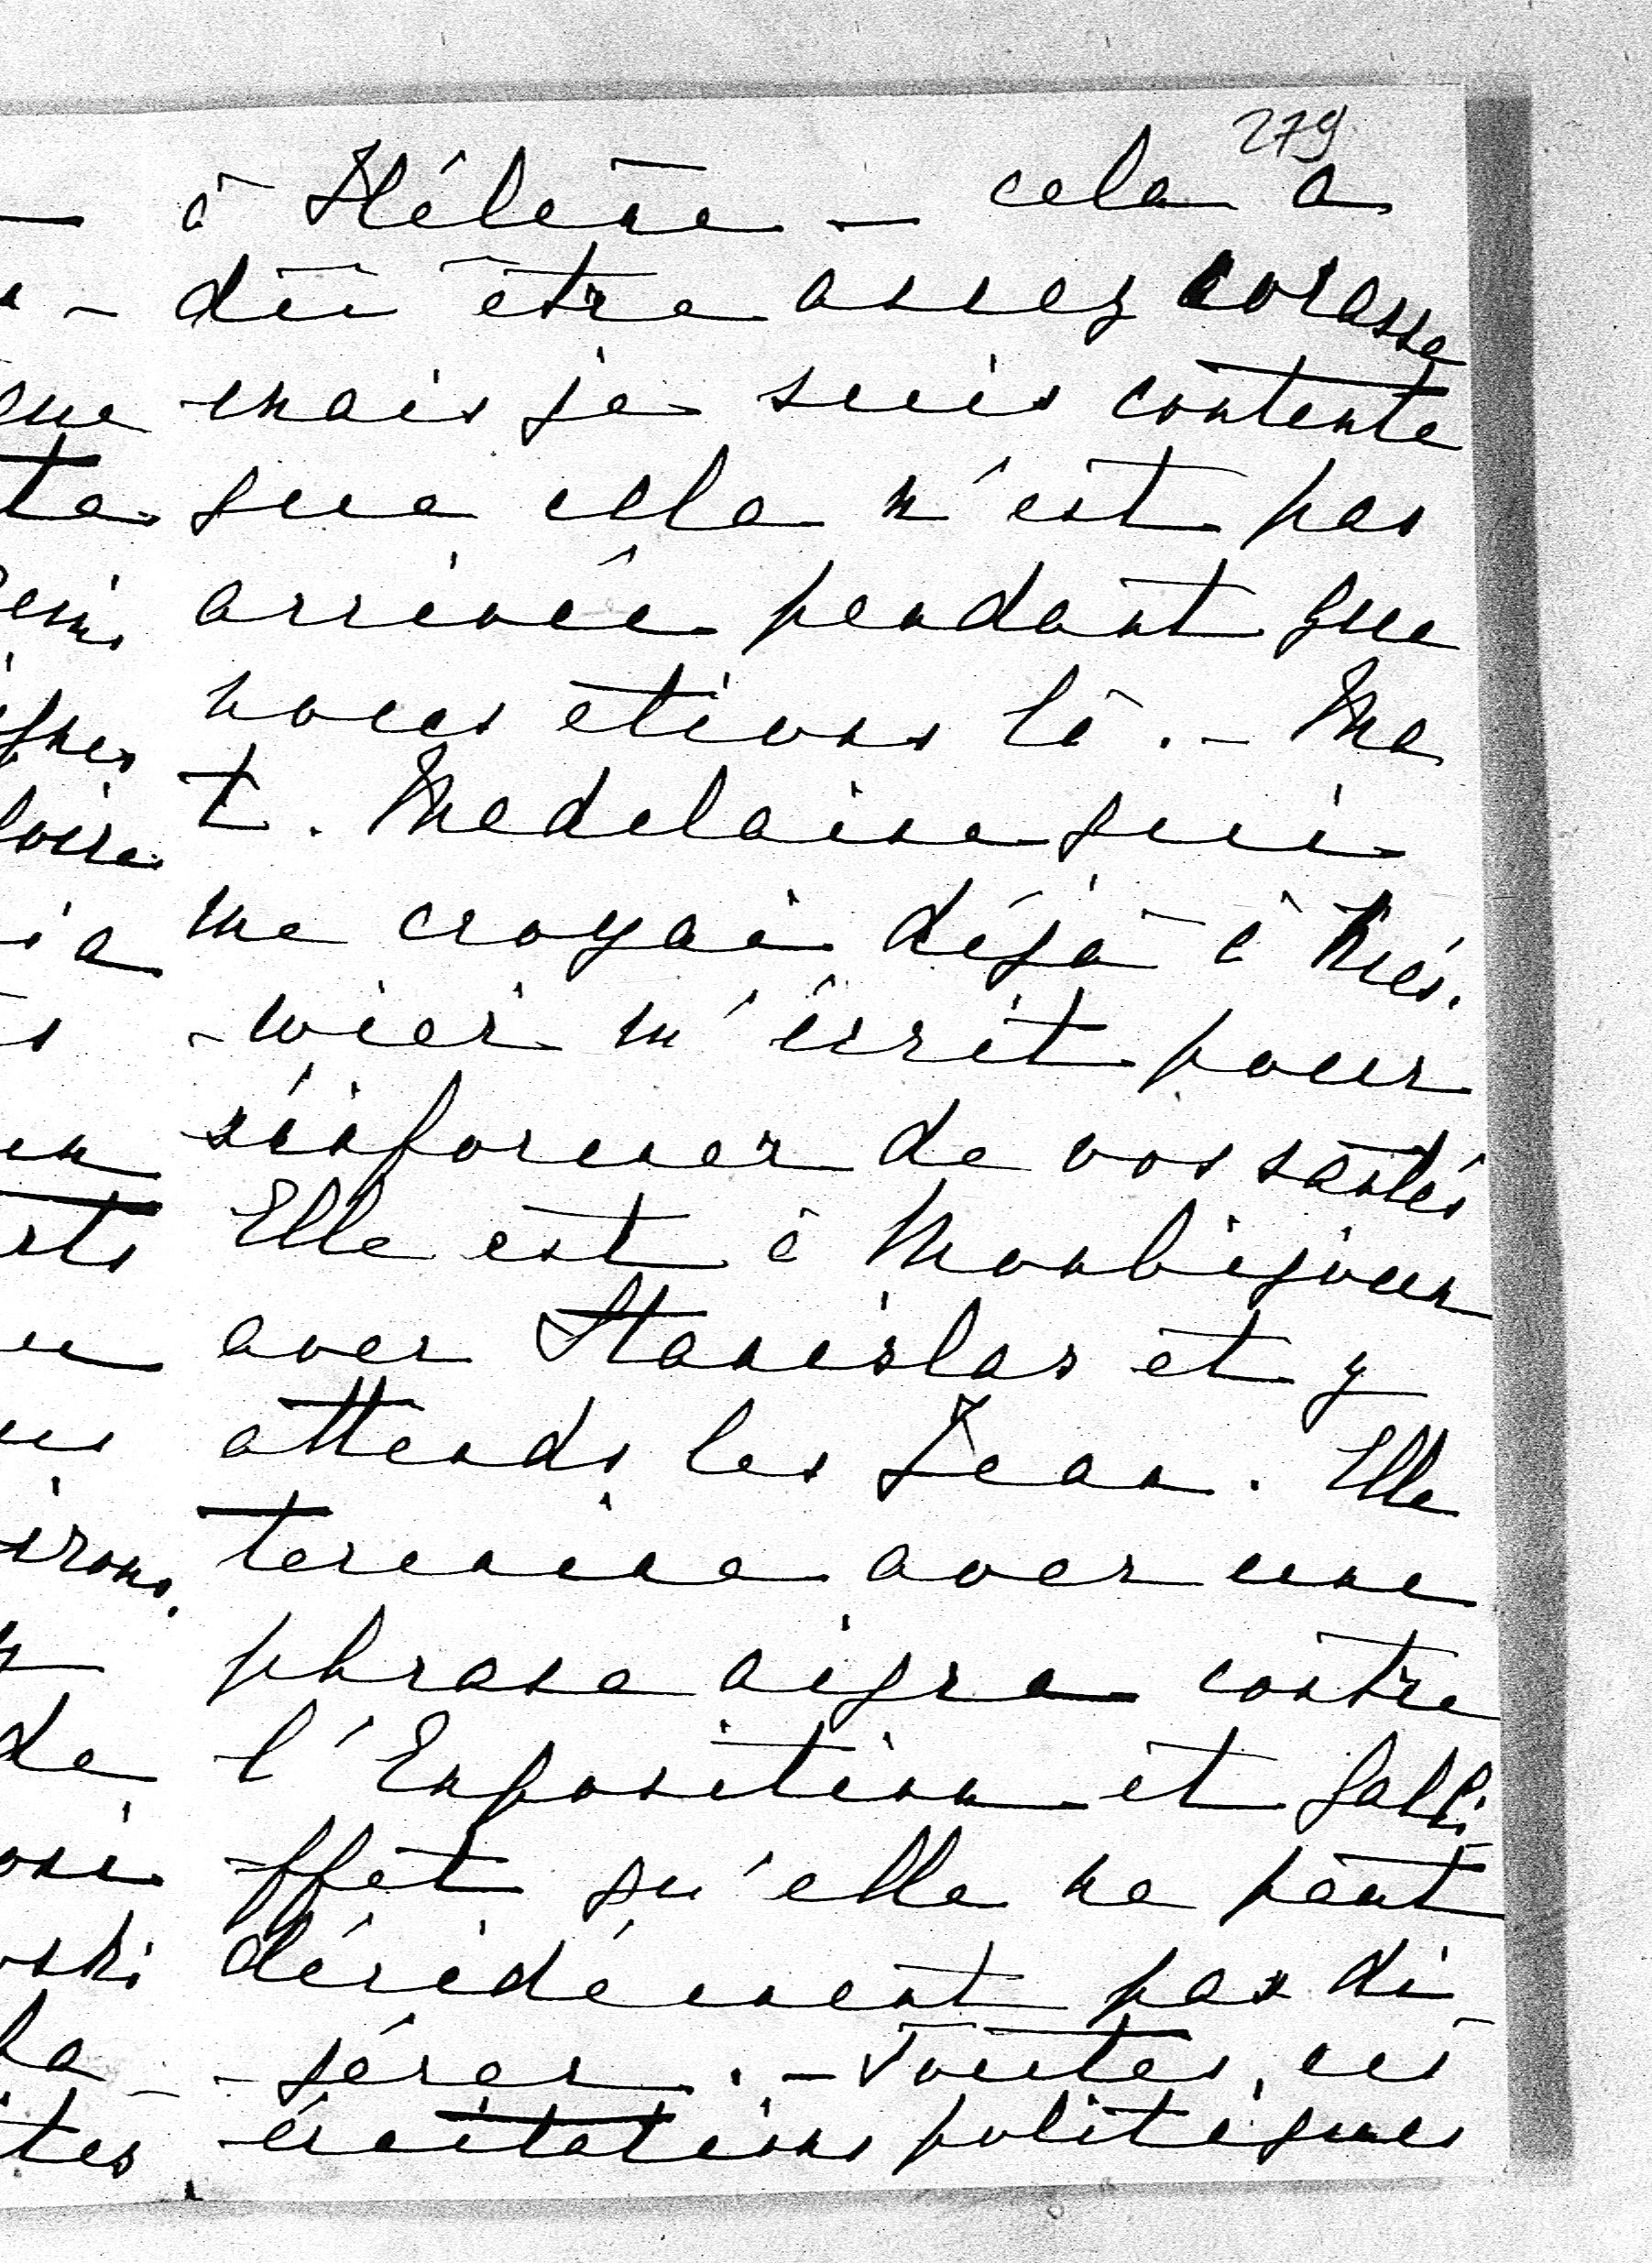 279
à Hélène — cela a
dû être assez cocasse
mais je suis contente
que cela n'est pas
arrivée pendant que
nous etions là. - Ma
t. Madelaine qui
me croyai déjà à Niés.
-wiez m'écrit pour
s'informer de vos santés
Elle est à Monbijou
avec Stanislas et y
attends les Jean. Elle
termine avec une
phrase aigre contre
l'Exposition et Galli
-ffet qu'elle ne peut
décidément pas di
-gérer. - Toutes ces
éxcitations politiques